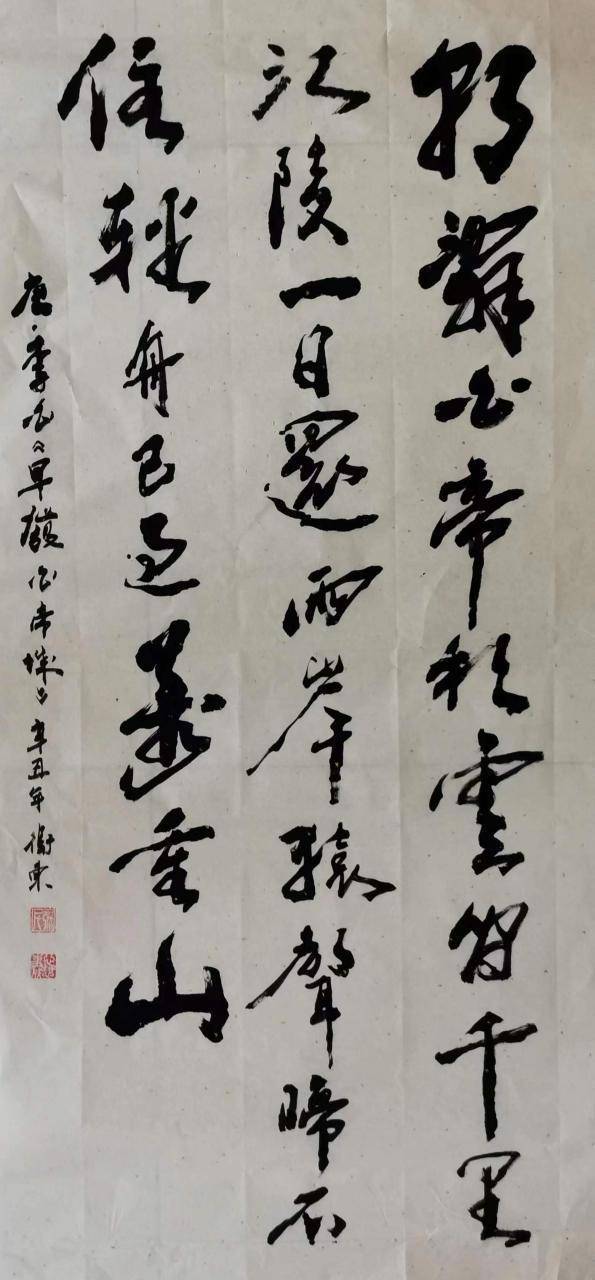 朝辭白帝彩雲間千里
江陵一日還兩岸猿聲啼不
住輕舟已過萬重山
唐·李白《早發白帝城》辛丑年衛東